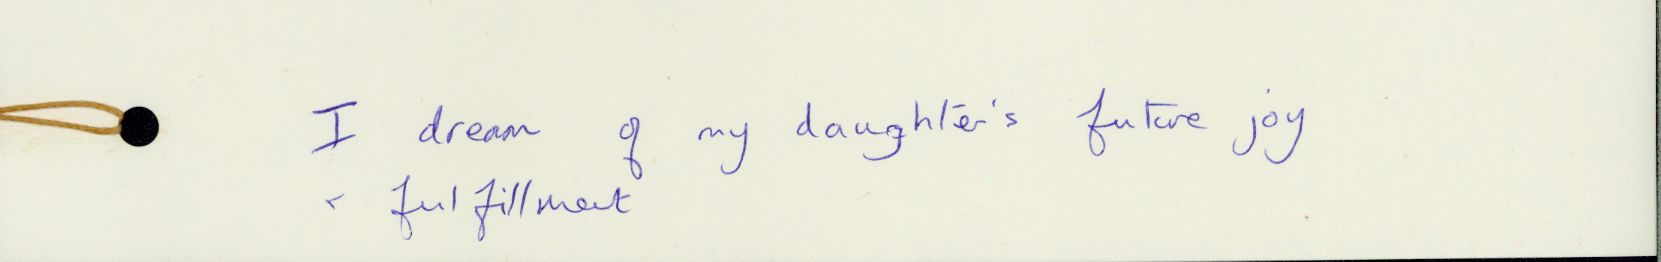 I dream of my daughter's future joy
& fulfillment